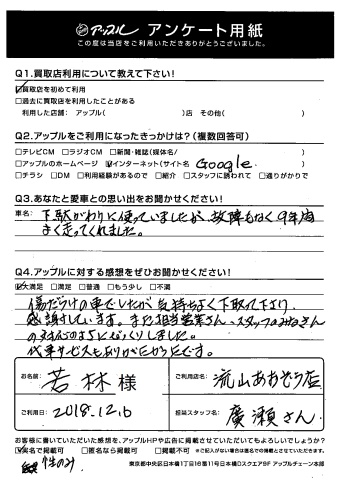 アップル アンケート用紙
この度は当店をご利用いただきありがとうございました。
Q1.買取店利用について教えて下さい!
☑買取店を初めて利用
□過去に買取店を利用したことがある
利用した店舗: アップル( )店 その他( )
Q2.アップルをご利用になったきっかけは?(複数回答可)
□テレビCM □ラジオCM □新聞・雑誌(媒体名/ )
□アップルのホームページ ☑インターネット(サイト名 Google. )
□チラシ □DM □利用経験があるので □紹介 □スタッフに誘われて □通りがかりで
Q3.あなたと愛車との思い出をお聞かせください!
車名: 下駄がわりに使っていましたが、故障もなく9年間
よく走ってくれました。
Q4.アップルに対する感想をぜひお聞かせください!
☑大満足 □満足 □普通 □もう少し □不満
傷だらけの車でしたが、気持ちよく下取って下さり、
感謝しています。また担当営業さん、スタッフのみなさん
の対応のよさにびっくりしました。
代車サービスもありがたかったです。
お名前: 若林 様
ご利用店名: 流山おおたか店
ご利用日: 2018.12.
担当スタッフ名: 廣瀬さん
お客様に書いていただいた感想を、アップルHPや広告に掲載させていただいてもよろしいでしょうか?
☑実名で掲載可 □匿名なら掲載可 □掲載不可 ※ご記入がない場合は匿名での掲載とさせていただきます。
性のみ
東京都中央区日本橋1丁目16番11号日本橋Dスクエア8F アップルチェーン本部